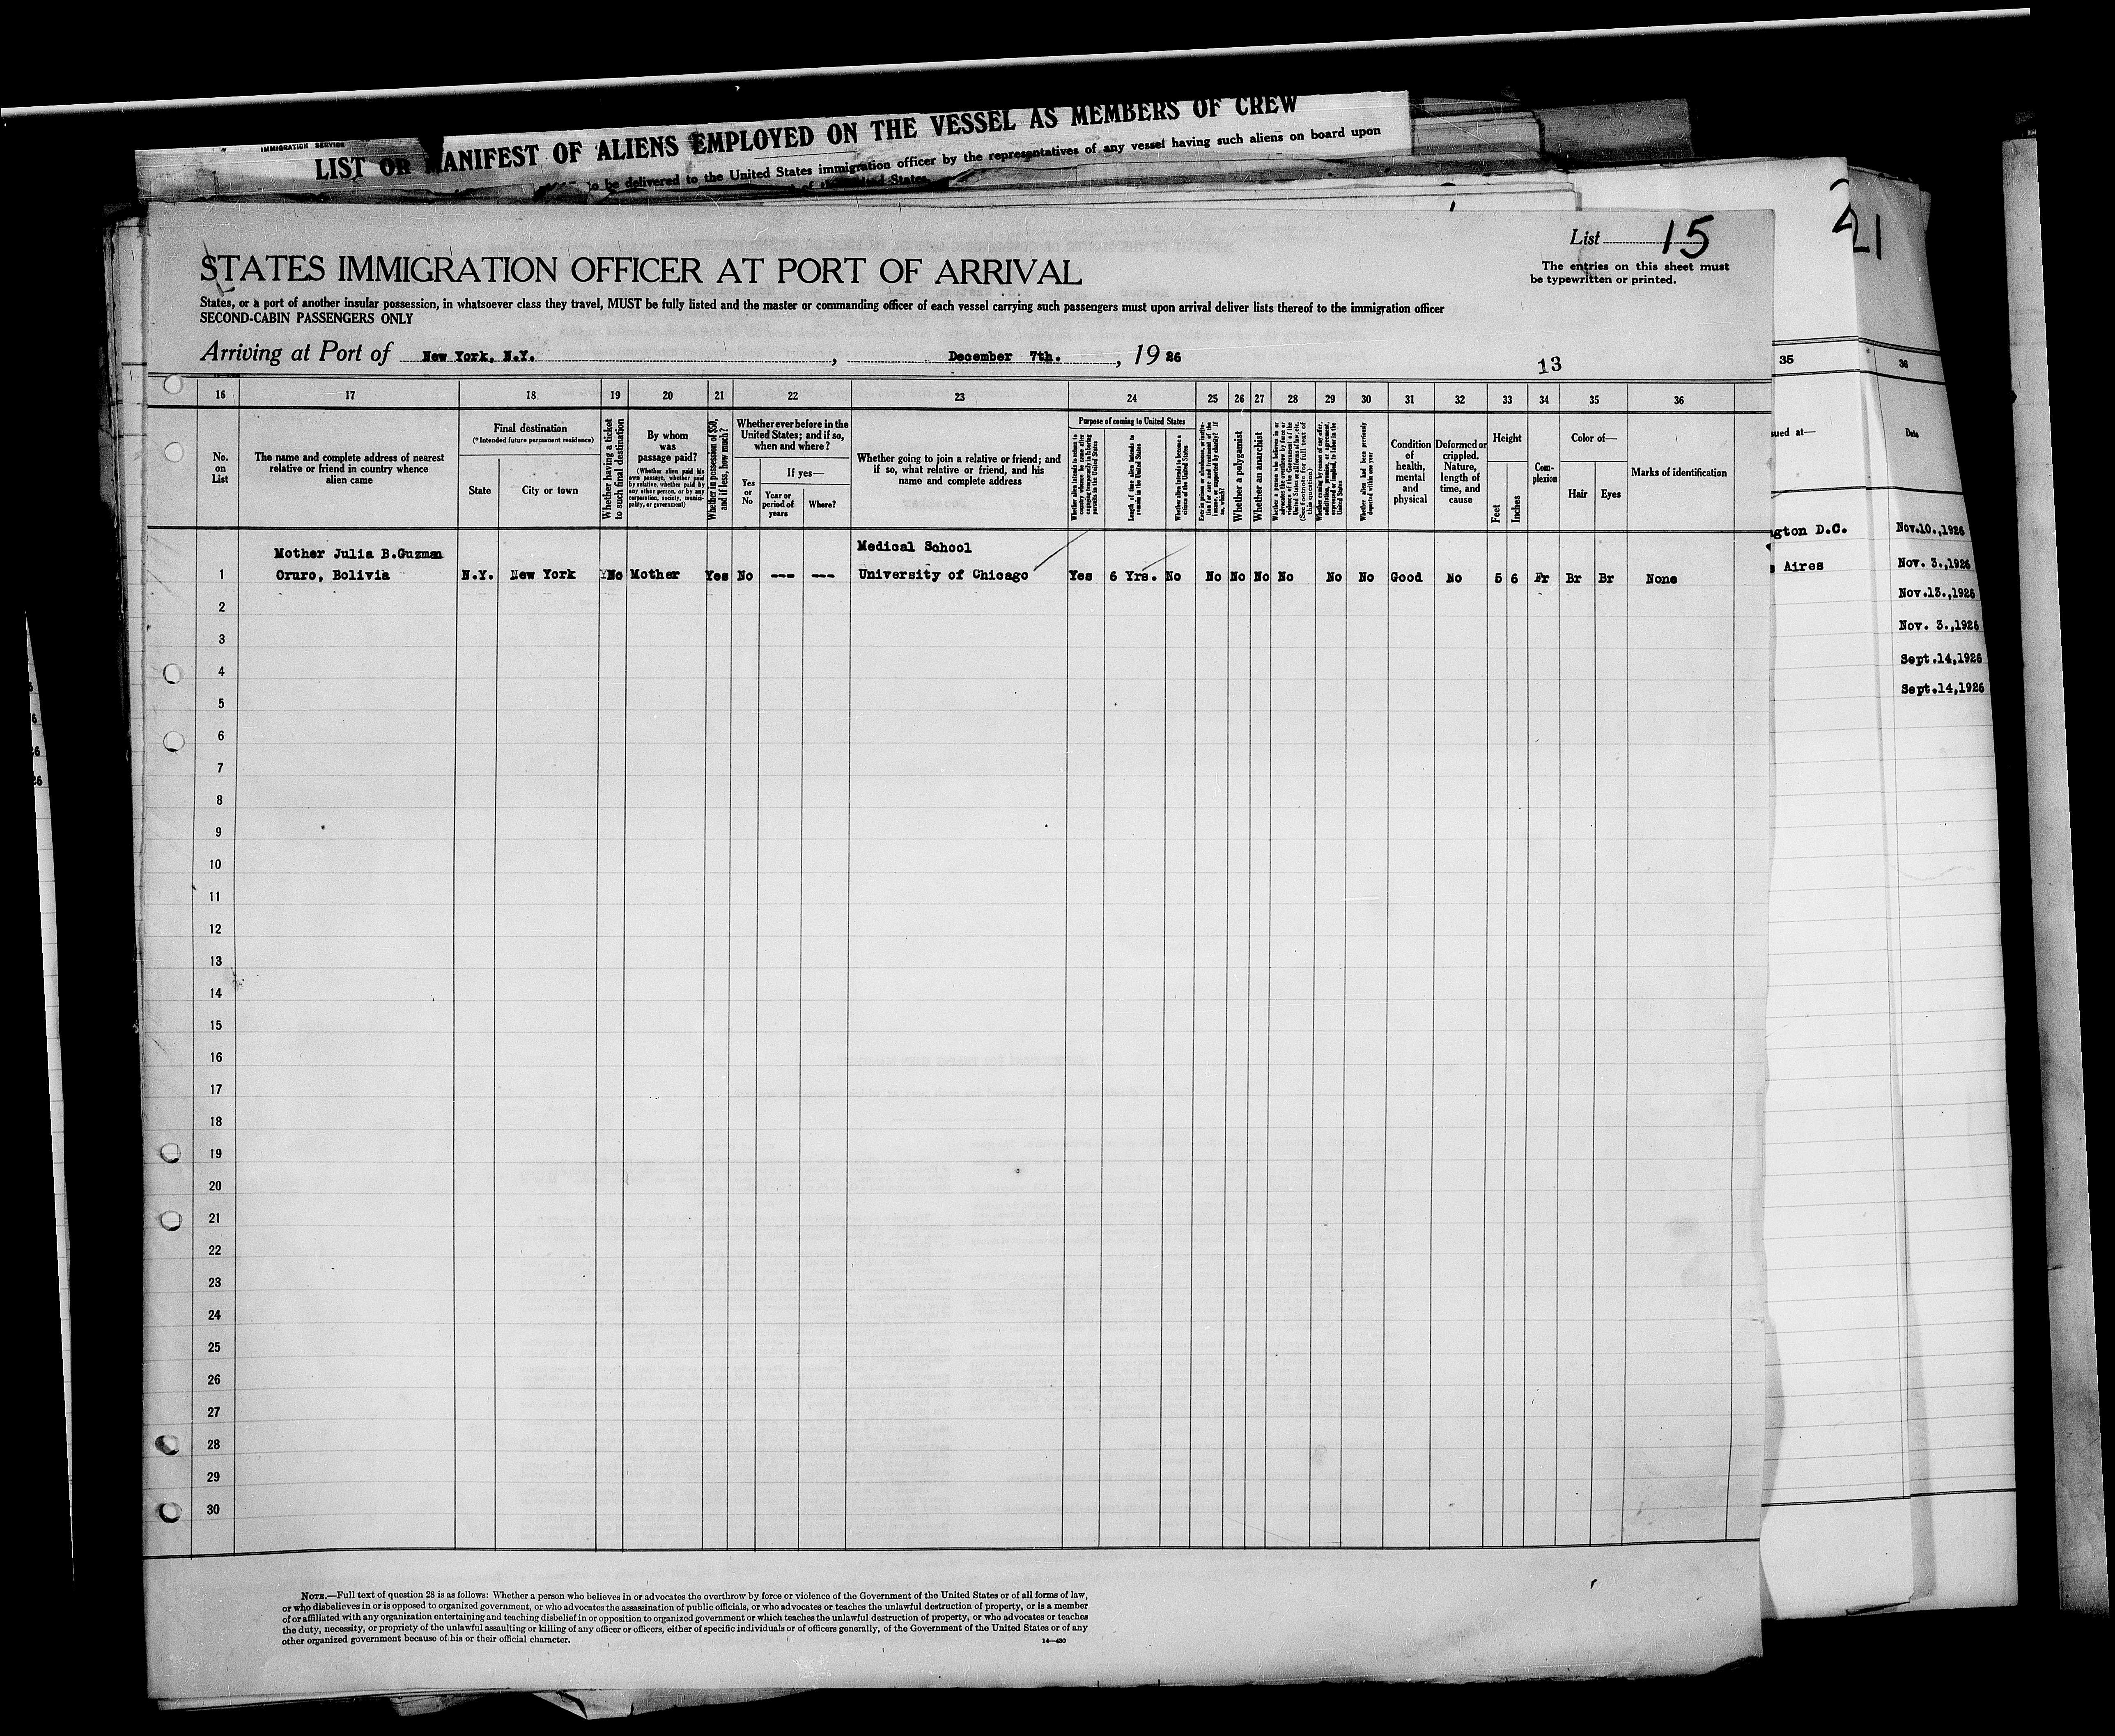 IMMIGRATION SERVICE
LIST OR MANIFEST OF ALIENS EMPLOYED ON THE VESSEL AS MEMBERS OF CREW
to be delivered to the United States immigration officer by the representatives of any vessel having such aliens on board upon
States.
List 15
21
The entries on this sheet must
be typewritten or printed.
STATES IMMIGRATION OFFICER AT PORT OF ARRIVAL
States, or a port of another insular possession, in whatsoever class they travel, MUST be fully listed and the master or commanding officer of each vessel carrying such passengers must upon arrival deliver lists thereof to the immigration officer
SECOND-CABIN PASSENGERS ONLY
Arriving at Port of New York, N.Y. , December 7th. , 19 26
13
16 17 18 19 20 21 22 23 24 25 26 27 28 29 30 31 32 33 34 35 36
No. on List
The name and complete address of nearest relative or friend in country whence alien came
Final destination
(*Intended future permanent residence)
State
City or town
Whether having a ticket to such final destination
By whom was passage paid?
(Whether alien paid his own passage, whether paid by relative, whether paid by any other person, or by any corporation, society, municipality, or government)
Whether in possession of $50, and if less, how much?
Whether ever before in the United States; and if so, when and where?
Yes or No
If yes—
Year or period of years
Where?
Whether going to join a relative or friend; and if so, what relative or friend, and his name and complete address
Purpose of coming to United States
Whether alien intends to return to country whence he came after engaging temporarily in laboring pursuits in the United States
Length of time alien intends to remain in the United States
Whether alien intends to become a citizen of the United States
Ever in prison or almshouse, or institution for care and treatment of the insane, or supported by charity? If so, which?
Whether a polygamist
Whether an anarchist
Whether a person who believes in or advocates the overthrow by force or violence of the Government of the United States or all forms of law, etc. (See footnote for full text of this question)
Whether coming by reason of any offer, solicitation, promise, or agreement, expressed or implied, to labor in the United States
Whether alien had been previously deported within one year
Condition of health, mental and physical
Deformed or crippled. Nature, length of time, and cause
Height
Feet
Inches
Complexion
Color of—
Hair
Eyes
Marks of identification
Mother Julia B.Guzman
Medical School
1 Oruro, Bolivia N.Y. New York No Mother Yes No --- --- University of Chicago Yes 6 Yrs. No No No No No No No Good No 5 6 Fr Br Br None
2
3
4
5
6
7
8
9
10
11
12
13
14
15
16
17
18
19
20
21
22
23
24
25
26
27
28
29
30
NOTE.—Full text of question 28 is as follows: Whether a person who believes in or advocates the overthrow by force or violence of the Government of the United States or of all forms of law,
or who disbelieves in or is opposed to organized government, or who advocates the assassination of public officials, or who advocates or teaches the unlawful destruction of property, or is a member
of or affiliated with any organization entertaining and teaching disbelief in or opposition to organized government or which teaches the unlawful destruction of property, or who advocates or teaches
the duty, necessity, or propriety of the unlawful assaulting or killing of any officer or officers, either of specific individuals or of officers generally, of the Government of the United States or of any
other organized government because of his or their official character.
14—430
35 36
sued at— Date
gton D.C. Nov.10.,1926
Aires Nov. 3.,1926
Nov.13.,1926
Nov. 3.,1926
Sept.14,1926
Sept.14,1926